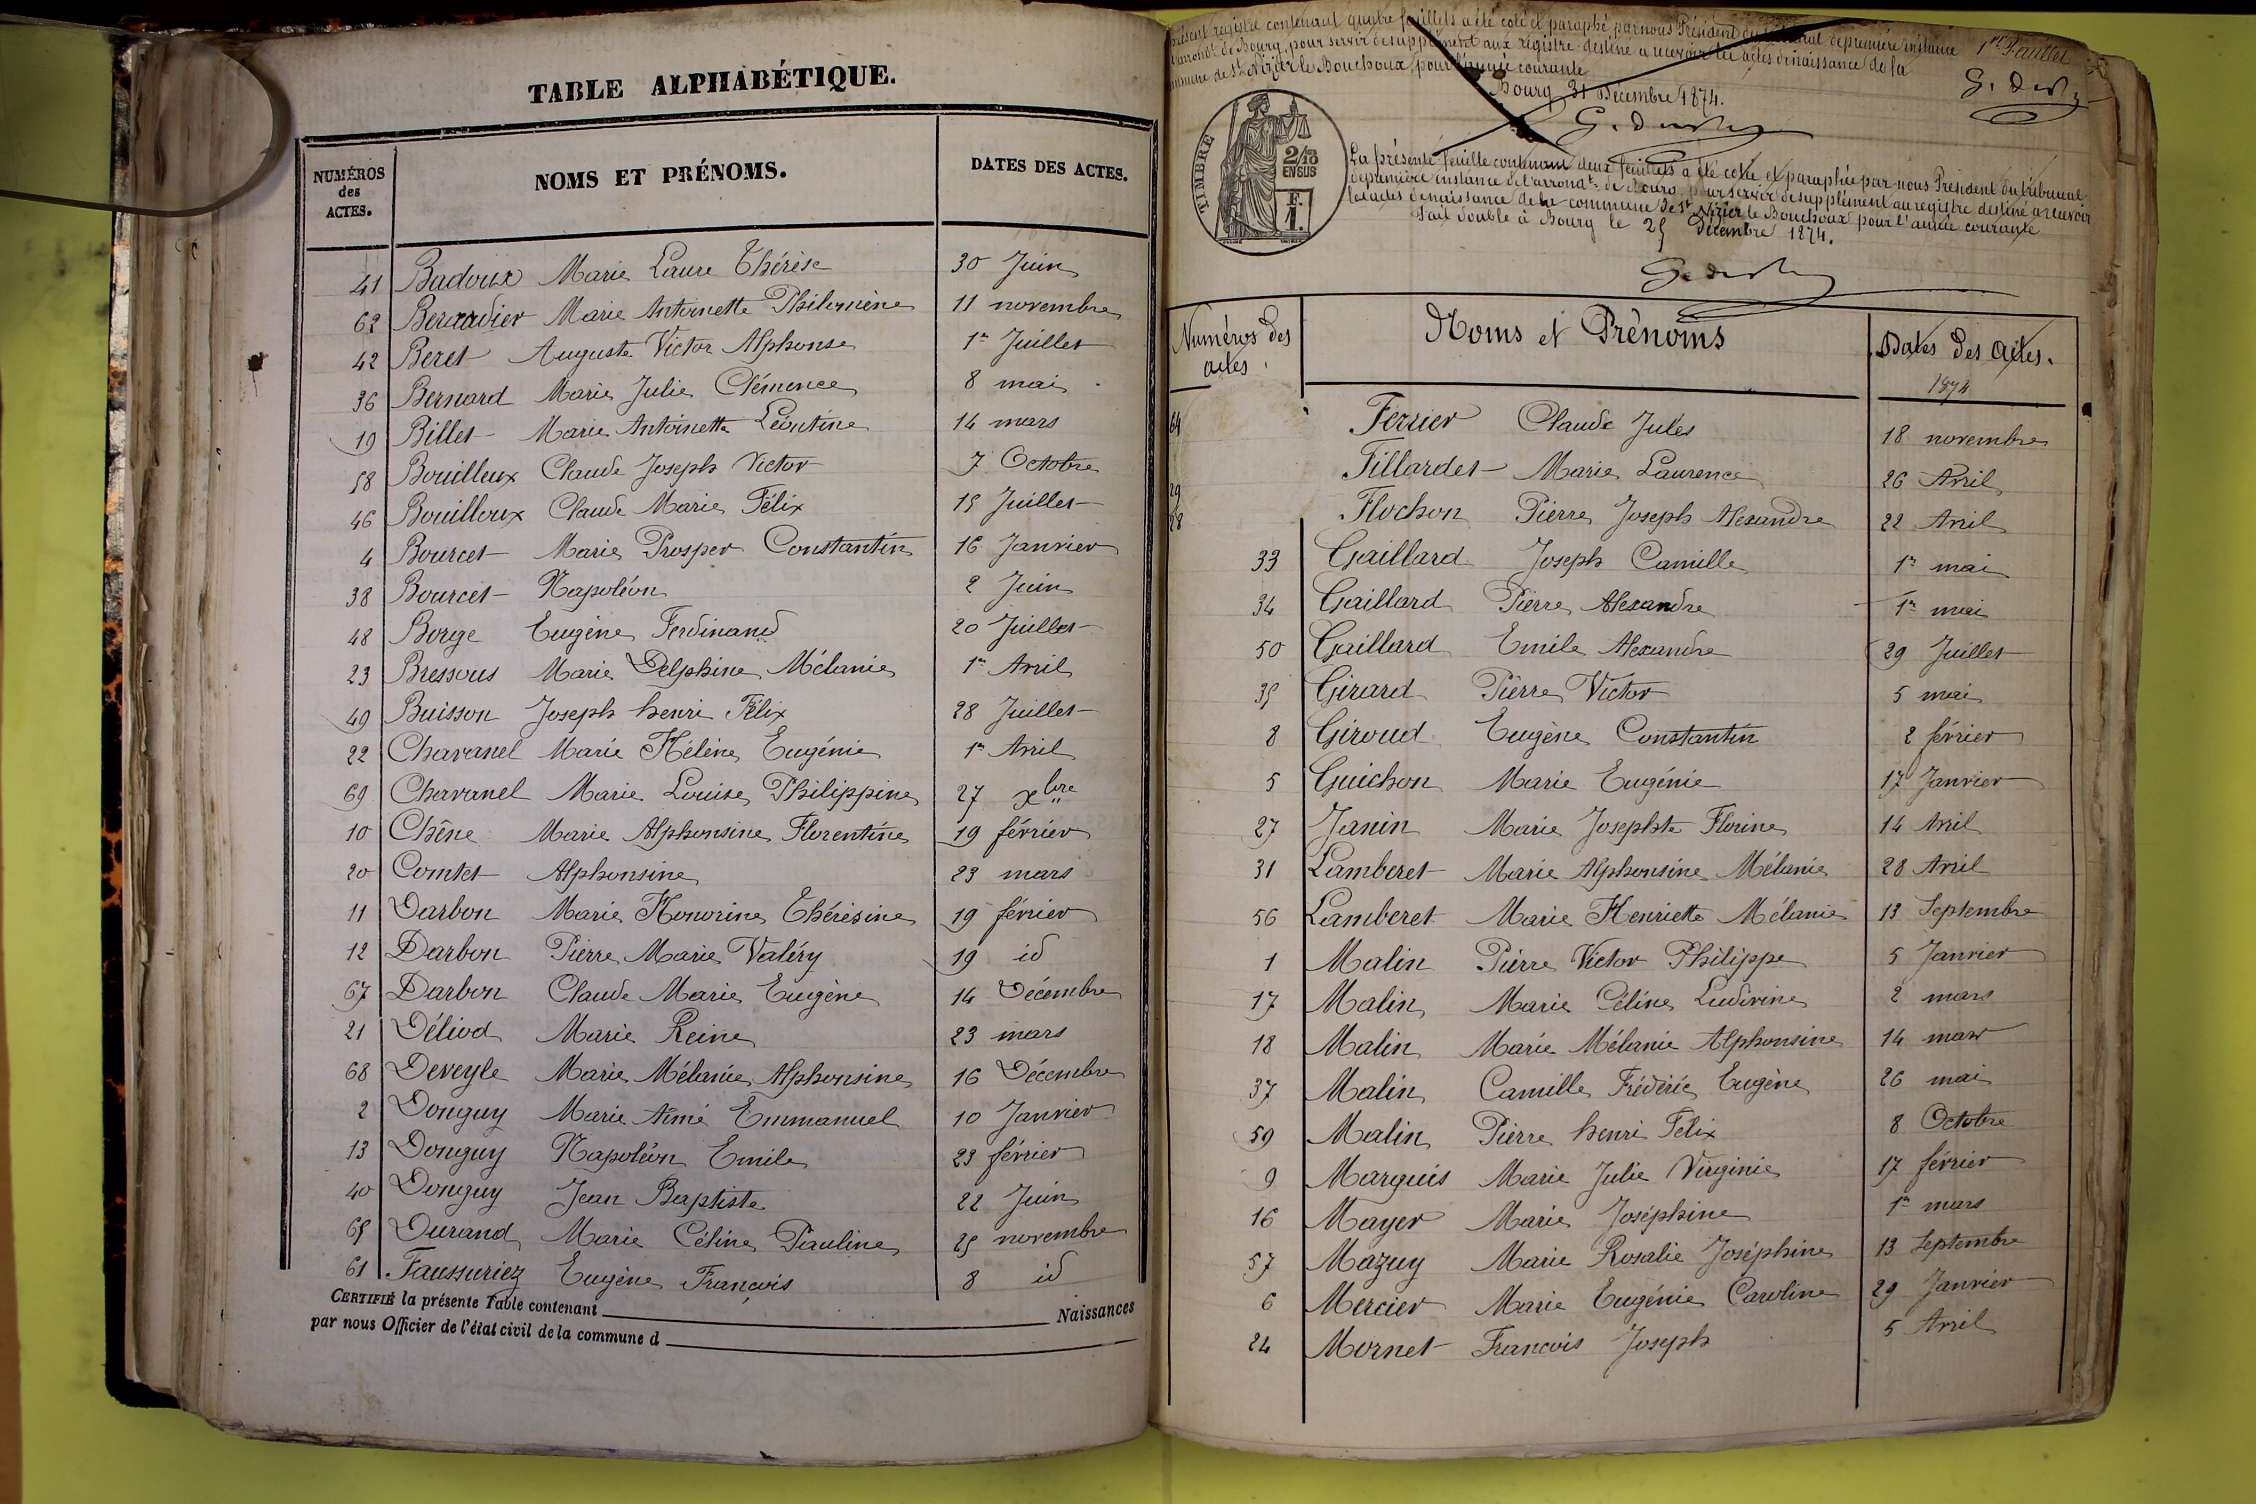 TABLE ALPHABÉTIQUE.
NUMÉROS des ACTES. NOMS ET PRÉNOMS. DATES DES ACTES.
41 Badoux Marie Laure Thérèse 30 Juin
62 Beraudier Marie Antoinette Philomène 11 novembre
42 Beret Auguste Victor Alphonse 1er Juillet
36 Bernard Marie Julie Clémence 8 mai
19 Billet Marie Antoinette Léontine 14 mars
58 Bouilloux Claude Joseph Victor 7 Octobre
46 Bouilloux Claude Marie Félix 15 Juillet
4 Bourcet Marie Prosper Constantin 16 Janvier
38 Bourcet Napoléon 2 Juin
48 Borge Eugène Ferdinand 20 Juillet
23 Bressous Marie Delphine Mélanie 1er Avril
49 Buisson Joseph henri Félix 28 Juillet
22 Chavanel Marie Hélène Eugénie 1er Avril
69 Chavanel Marie Louise Philippine 27 xbre
10 Chêne Marie Alphonsine Florentine 19 février
20 Comtet Alphonsine 23 mars
11 Darbon Marie Honorine Thérèsine 19 février
12 Darbon Pierre Marie Valéry 19 id
67 Darbon Claude Marie Eugène 14 Décembre
21 Déliod Marie Reine 23 mars
68 Deveyle Marie Mélanie Alphonsine 16 Décembre
2 Donguy Marie Aimé Emmanuel 10 Janvier
13 Donguy Napoléon Emile 23 février
40 Donguy Jean Baptiste 22 Juin
65 Durand Marie Céline Pauline 25 novembre
61 Faussuriez Eugène François 8 id
CERTIFIÉ la présente Table contenant Naissances
par nous Officier de l'état civil de la commune d
présent registre contenant quatre feuillets a été coté et paraphé par nous Président du tribunal de première instance 1er Feuillet
l'arrondt de Bourg, pour servir de supplément aux registre destiné a recevoir les actes de naissance de la
commune de St Nizier le Bouchoux, pour l'année courante
Bourg 31 Décembre 1874.
TIMBRE
2/10 EN SUS
F. 1.
La présente feuille contenant deux feuillets a été cotée et paraphée par nous Président du tribunal
de première instance de l'arrondt de Bourg, pour servir de supplément au registre destiné a recevoir
les actes de naissance de la commune de St Nizier le Bouchoux pour l'année courante
Fait double à Bourg le 25 Décembre 1874.
Numéros des actes. Noms et Prénoms Dates des actes. 1874
64 Ferrier Claude Jules 18 novembre
29 Fillardet Marie Laurence 26 Avril
28 Flochon Pierre Joseph Alexandre 22 Avril
33 Gaillard Joseph Camille 1er mai
34 Gaillard Pierre Alexandre 1er mai
50 Gaillard Emile Alexandre 29 Juillet
35 Girard Pierre Victor 5 mai
8 Giroud Eugène Constantin 2 février
5 Guichon Marie Eugénie 17 Janvier
27 Janin Marie Josephte Florine 14 Avril
31 Lamberet Marie Alphonsine Mélanie 28 Avril
56 Lamberet Marie Henriette Mélanie 13 Septembre
1 Malin Pierre Victor Philippe 5 Janvier
17 Malin Marie Céline Ludivine 2 mars
18 Malin Marie Mélanie Alphonsine 14 mars
37 Malin Camille Frédéric Eugène 26 mai
59 Malin Pierre henri Félix 8 Octobre
9 Marguis Marie Julie Virginie 17 février
16 Mayer Marie Joséphine 1er mars
57 Mazuy Marie Rosalie Joséphine 13 Septembre
6 Mercier Marie Eugénie Caroline 29 Janvier
24 Mornet François Joseph 5 Avril